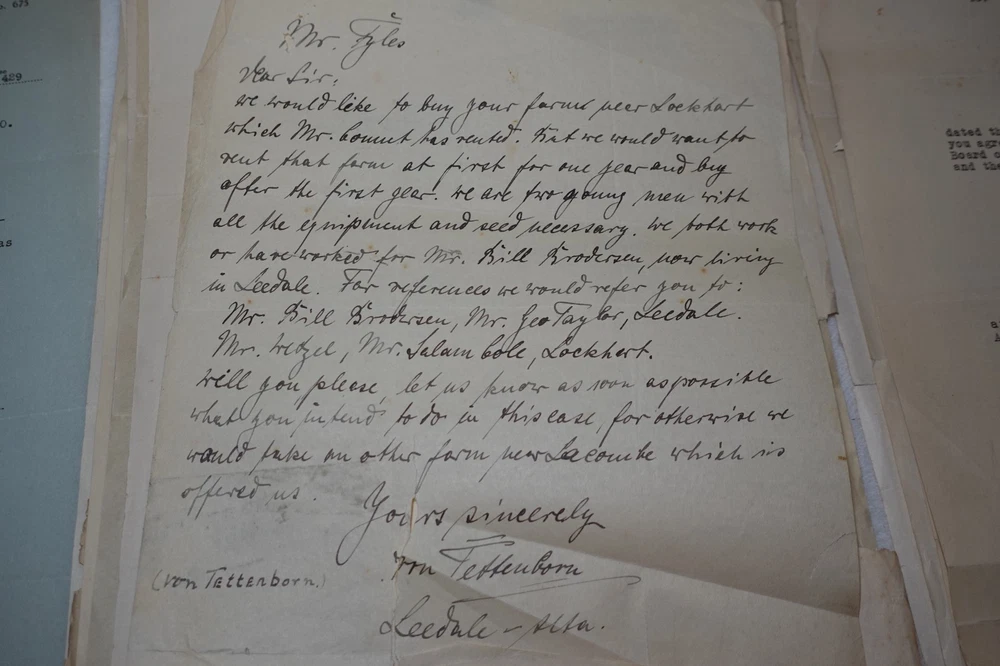 Mr. Fyles
Dear Sir,
we would like to buy your farm near Lockhart
which Mr. has rented. But we would want to
rent that farm at first for one year and buy
after the first year. We are two young men with
all the equipment and seed necessary. We both work
or have worked for Mr. Bill Brodersen, now living
in Leedale. For references we would refer you to:
Mr. Bill Brodersen, Mr. Geo Taylor, Leedale.
Mr. Wetzel, Mr. Cole, Lockhart.
Will you please, let us know as soon as possible
what you intend to do in this case, for otherwise we
would take an other farm near Lacombe which is
offered us.
Yours sincerely
von Tettenborn
(von Tettenborn.)
Leedale - Alta.
o. 673
489
O.
as
dated th
you agre
Board o
and the